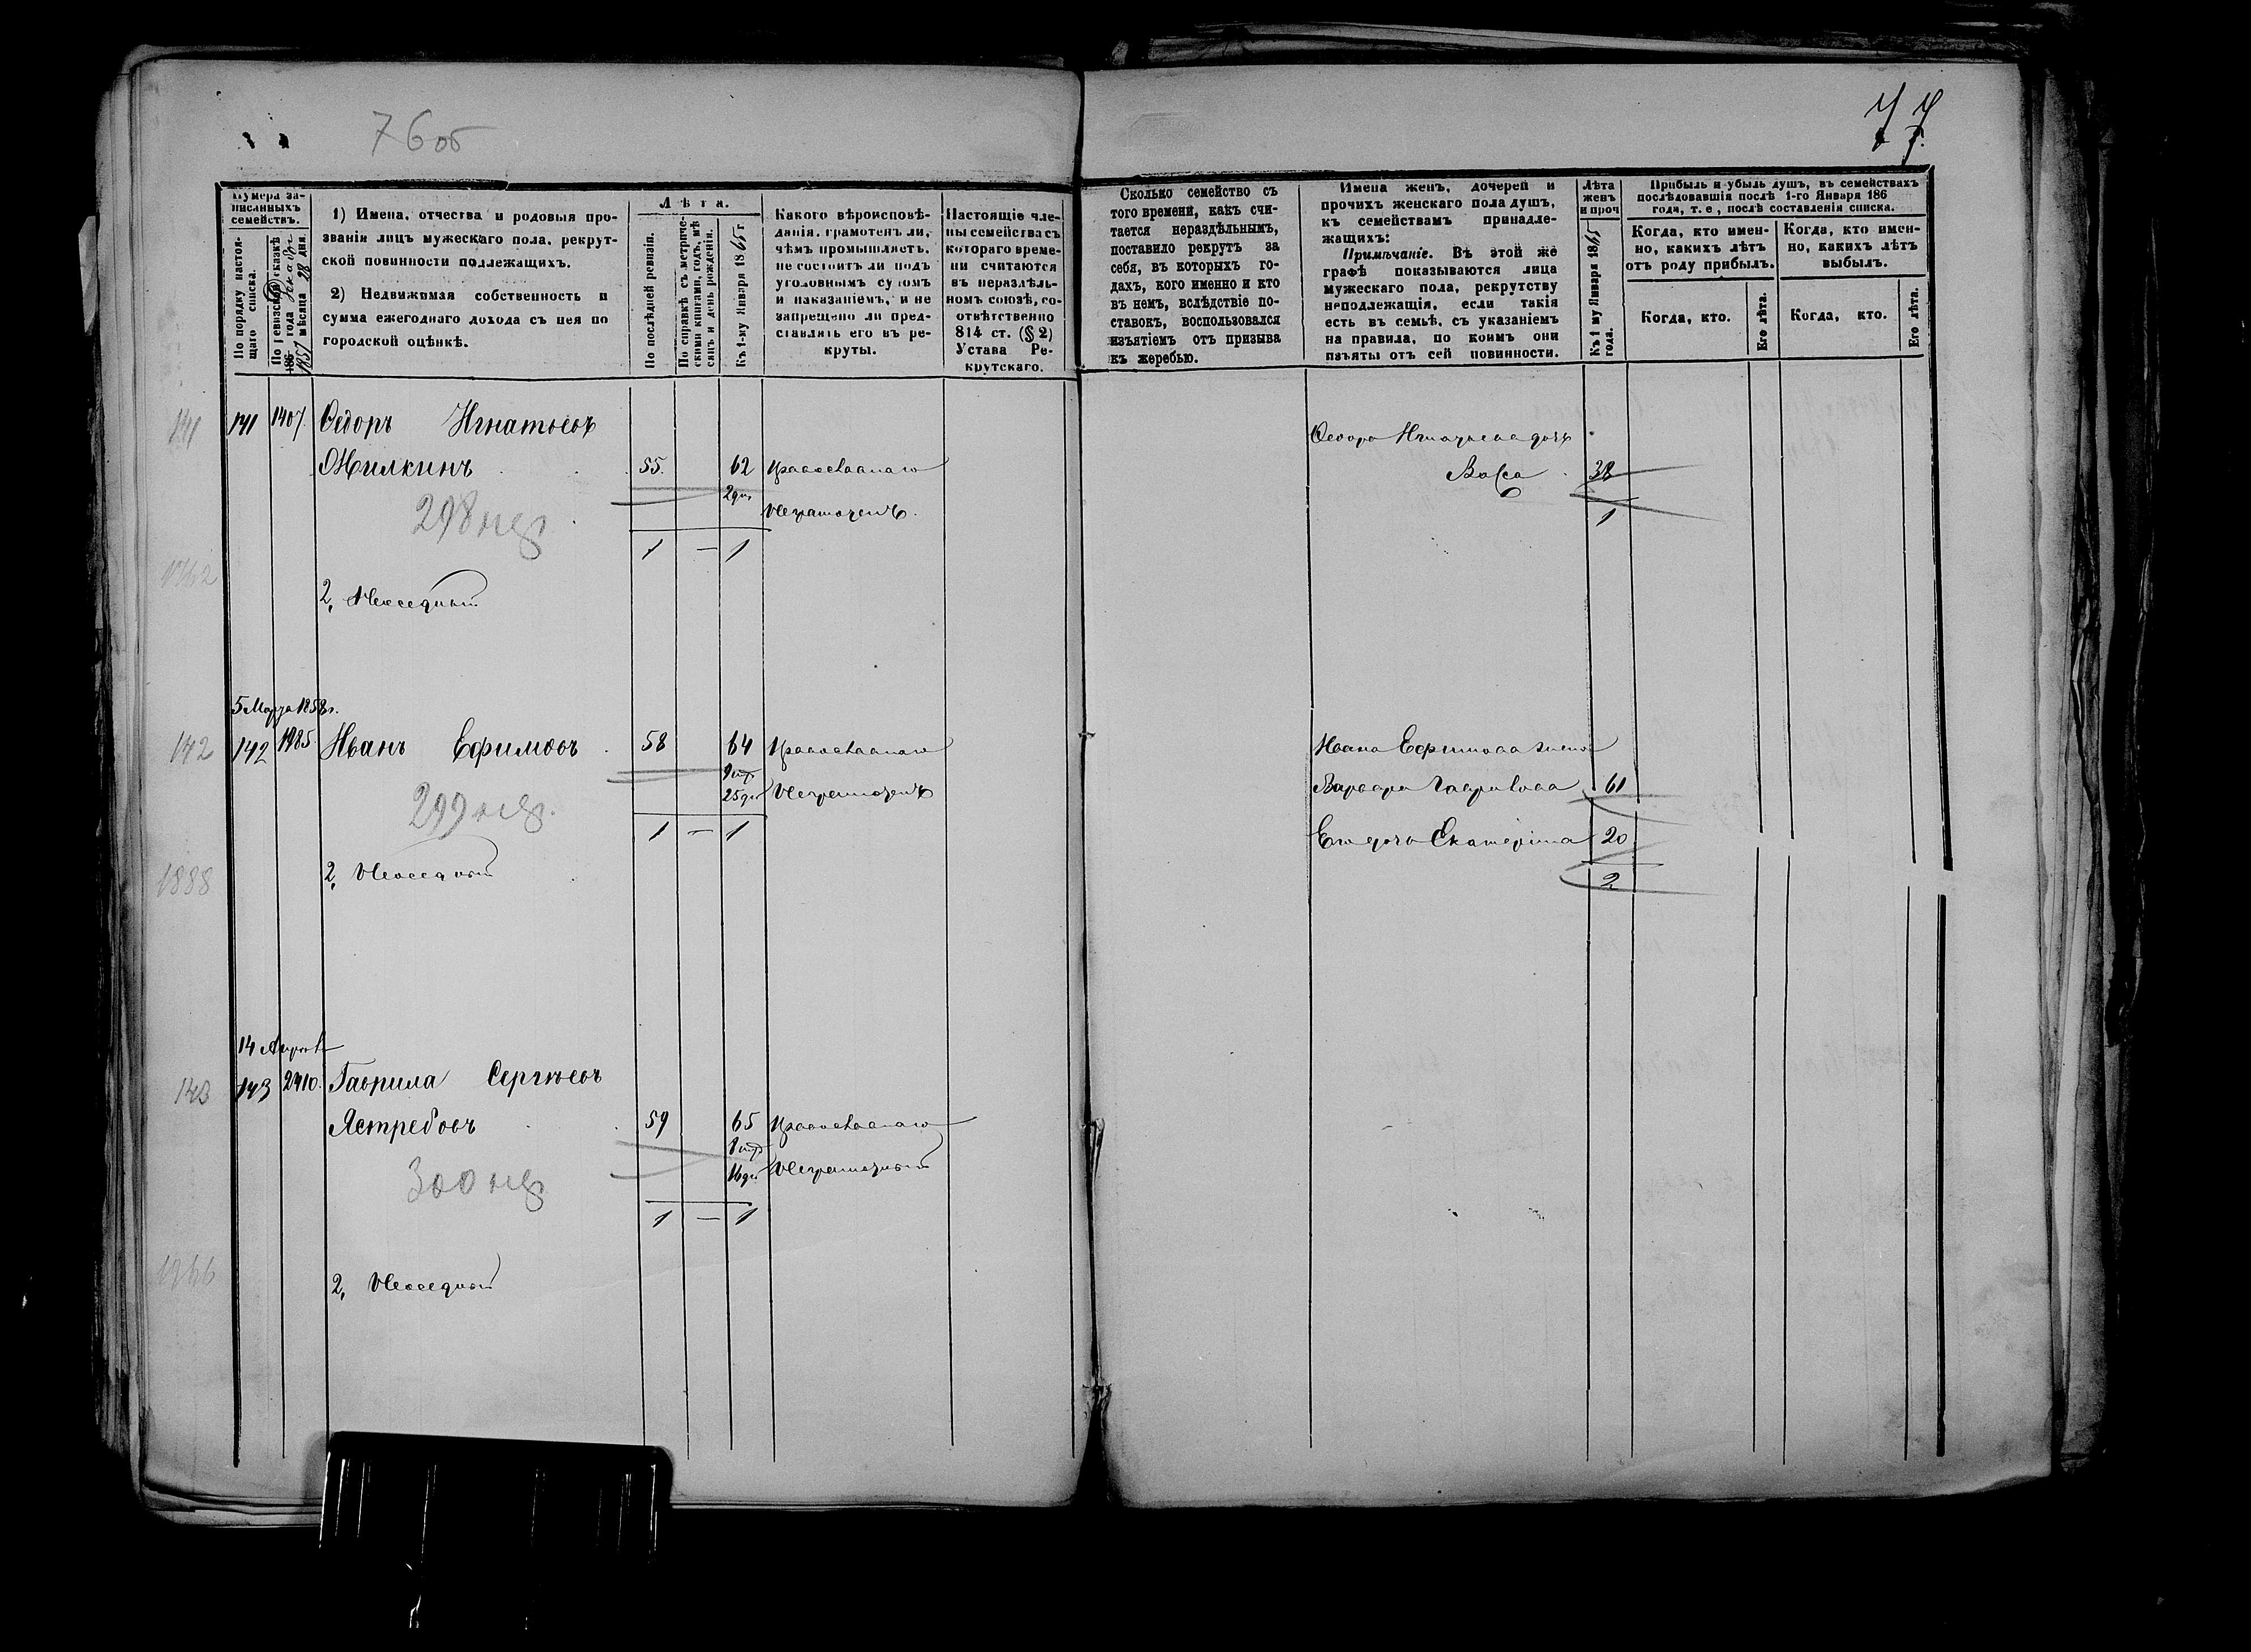 76 об
77
Нумера записанныхъ семействъ.
По порядку настоящаго списка.
По ревизской сказкѣ 186 года 1857 Декабря мѣсяца 28 дня.
1) Имена, отчества и родовыя про-
званія лицъ мужескаго пола, рекрут-
ской повинности подлежащихъ.
2) Недвижимая собственность и
сумма ежегоднаго дохода съ нея по
городской оцѣнкѣ.
Лѣта.
По послѣдней ревизіи.
По справкѣ съ метриче-
скими книгами, годъ, мѣ
сяцъ и день рожденія.
Къ 1-му Января 1865 г.
Какого вѣроисповѣ-
данія, грамотенъ ли,
чѣмъ промышляетъ,
не состоитъ ли подъ
уголовнымъ судомъ
и наказаніемъ, и не
запрещено ли пред-
ставлять его въ ре-
круты.
Настоящіе чле-
ны семейства съ
котораго време-
ни считаются
въ нераздѣль-
номъ союзѣ, со-
отвѣтственно
814 ст. (§ 2)
Устава Ре-
крутскаго.
Сколько семейство съ
того времени, какъ счи-
тается нераздѣльнымъ,
поставило рекрутъ за
себя, въ которыхъ го-
дахъ, кого именно и кто
въ немъ, вслѣдствіе по-
ставокъ, воспользовался
изъятіемъ отъ призыва
къ жеребью.
Имена женъ, дочерей и
прочихъ женскаго пола душъ,
къ семействамъ принадле-
жащихъ:
Примѣчаніе. Въ этой же
графѣ показываются лица
мужескаго пола, рекрутству
неподлежащія, если такія
есть въ семьѣ, съ указаніемъ
на правила, по коимъ они
изъяты отъ сей повинности.
Лѣта
женъ
и проч
Къ 1 му Января 1865
года.
Прибыль и убыль душъ, въ семействахъ
послѣдовавшія послѣ 1-го Января 186
года, т. е., послѣ составленія списка.
Когда, кто имен-
но, какихъ лѣтъ
отъ роду прибылъ.
Когда, кто имен-
но, какихъ лѣтъ
выбылъ.
Когда, кто.
Его лѣта.
Когда, кто.
Его лѣта.
141 141 1407. Ѳедоръ Игнатьевъ
Ѳедора Игнатьева дочь
Жилкинъ 55. 62 Православнаго
Васса 38
2 дн.
Неграмотенъ.
298 нед.
1 — 1
1
2, Неоседлый
5 Марта 1858 г.
142 142 1985 Иванъ Ефимовъ 58 64 Православнаго
Ивана Ефимова жена
25 дн Неграмотенъ
Варвара Гаврилова 61
299 нед.
1 — 1
Его дочь Екатерина 20
2
1888
2, Неоседлый
14 Апрѣля
143 143 2410. Гаврила Сергѣевъ
Ястребовъ 59 65 Православнаго
16 дн. Неграмотный
300 нед
1 — 1
2, Неоседлый